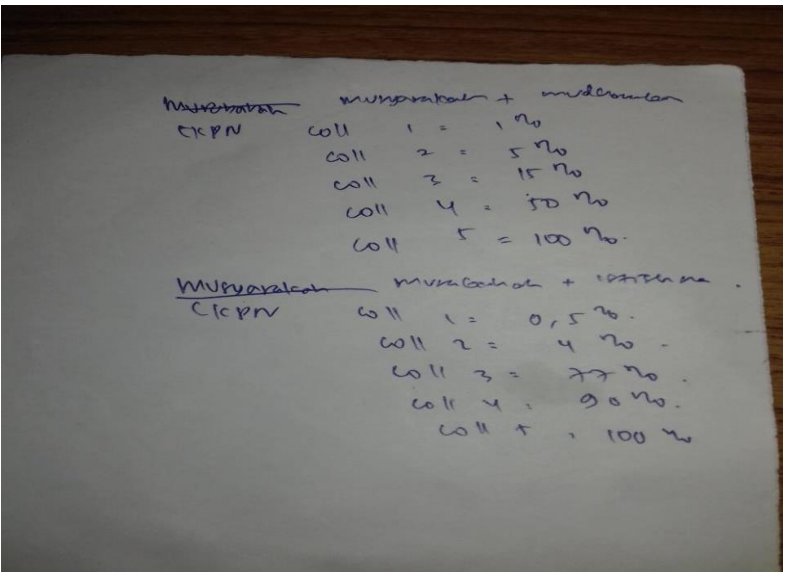 Murabahah musyarakah + mudharabah
CKPN coll 1 = 1 %
coll 2 = 5 %
coll 3 = 15 %
coll 4 = 50 %
coll 5 = 100 %.
Musyarakah murabahah + istishna .
CKPN coll 1 = 0,5 %.
coll 2 = 4 % -
coll 3 = 77 % .
coll 4 = 90 %.
coll 5 = 100 %